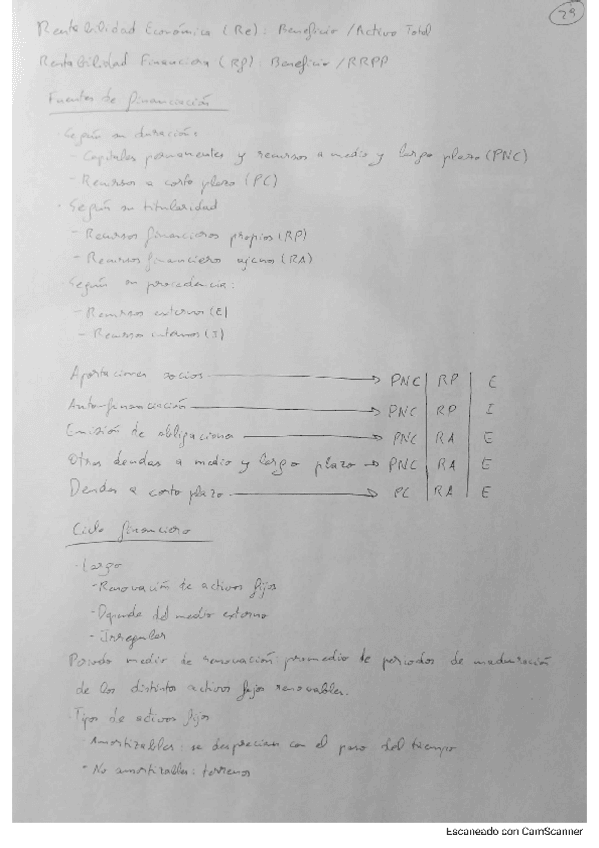 29
Rentabilidad Económica (Re): Beneficio / Activo Total
Rentabilidad Financiera (Rf): Beneficio / RRPP
Fuentes de financiación
· Según su duración:
- Capitales permanentes y recursos a medio y largo plazo (PNC)
- Recursos a corto plazo (PC)
· Según su titularidad
- Recursos financieros propios (RP)
- Recursos financiero ajenos (RA)
· Según su procedencia:
- Recursos externos (E)
- Recursos internos (I)
Aportaciones socios → PNC | RP | E
Autofinanciación → PNC | RP | I
Emisión de obligaciones → PNC | RA | E
Otras deudas a medio y largo plazo → PNC | RA | E
Deudas a corto plazo → PC | RA | E
Ciclo financiero
· Largo
- Renovación de activos fijos
- Depende del medio externo
- Irregular
Periodo medio de renovación: promedio de periodos de maduración
de los distintos activos fijos renovables.
· Tipos de activos fijos
- Amortizables: se deprecian con el paso del tiempo
- No amortizables: terrenos
Escaneado con CamScanner